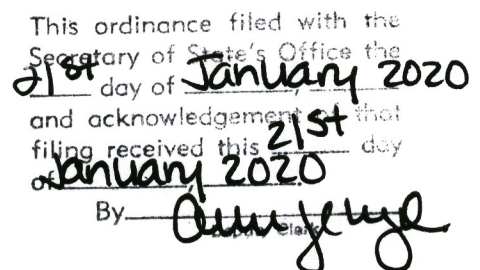 This ordinance filed with the
Secretary of State's Office the
21st day of January, 2020
and acknowledgement of that
filing received this 21st day
of January, 2020
By
Deputy Clerk